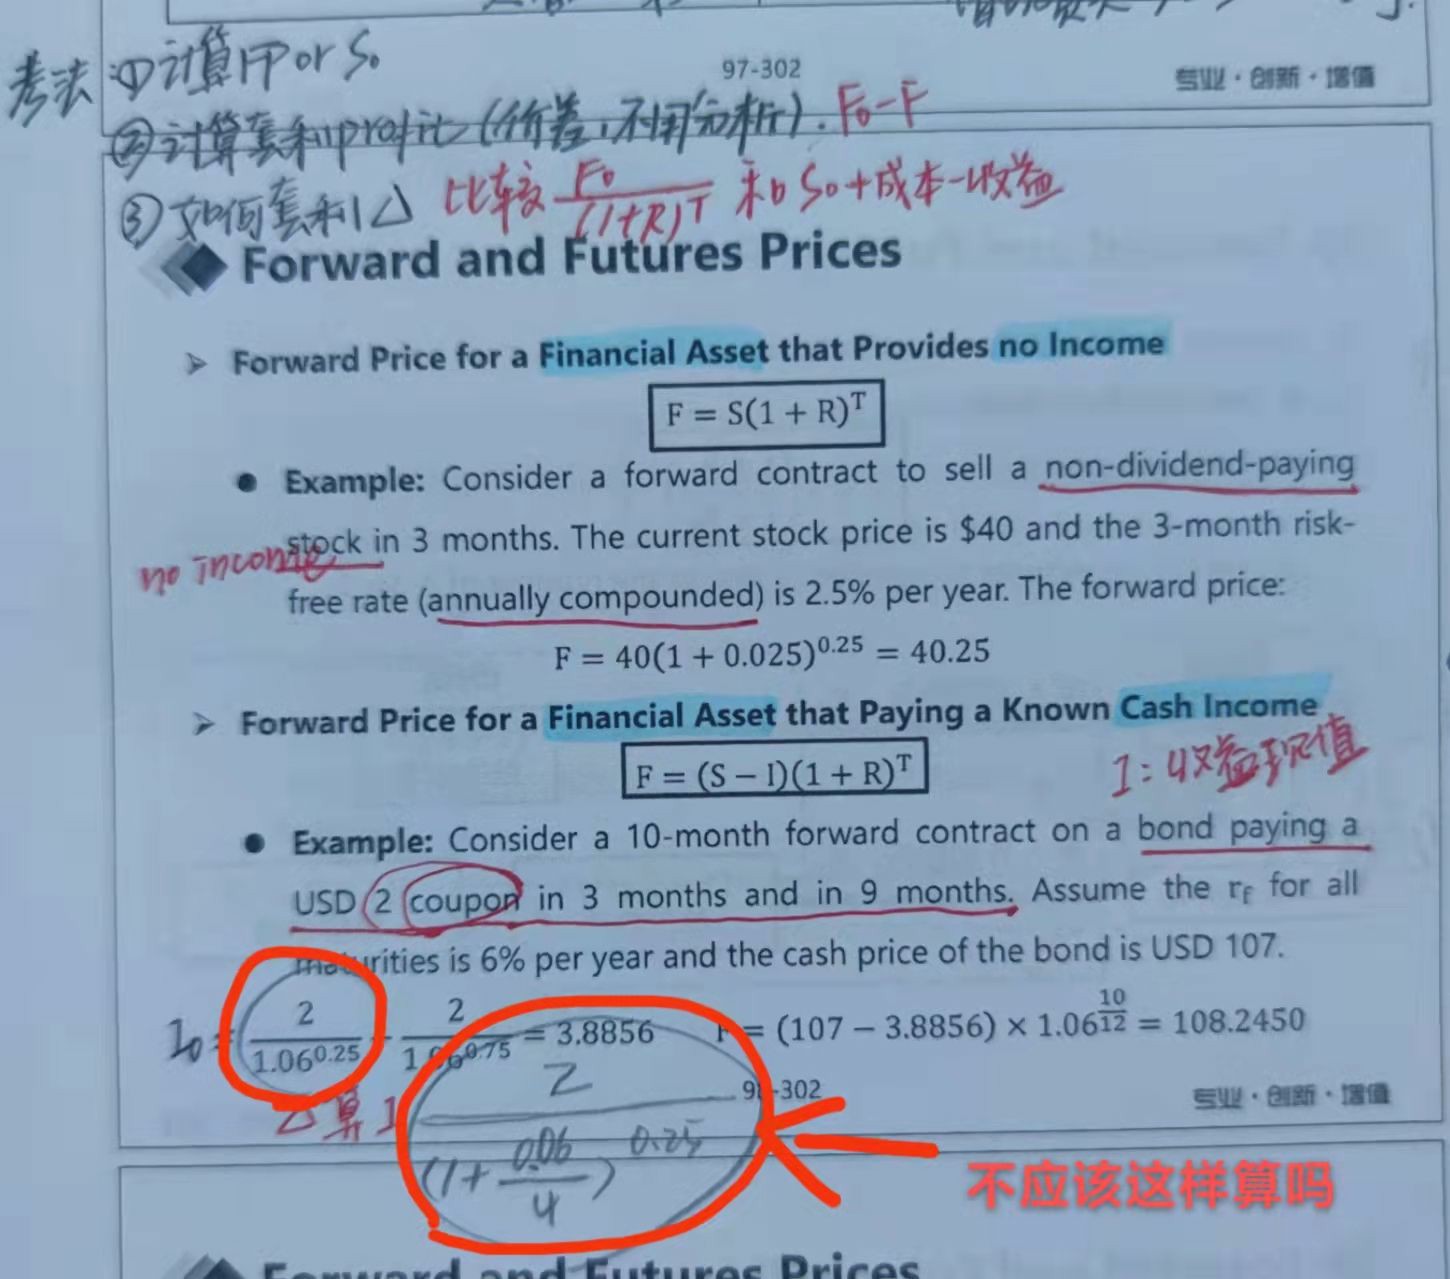 97-302
专业·创新·增值
考法:①计算FP or S₀
②计算套利profit(价差,不用分析). F₀-F
③如何套利△ 比较 F₀/(1+R)^T 和 S₀+成本-收益
Forward and Futures Prices
➢ Forward Price for a Financial Asset that Provides no Income
F = S(1 + R)^T
● Example: Consider a forward contract to sell a non-dividend-paying
stock in 3 months. The current stock price is $40 and the 3-month risk-
no income
free rate (annually compounded) is 2.5% per year. The forward price:
F = 40(1 + 0.025)^0.25 = 40.25
➢ Forward Price for a Financial Asset that Paying a Known Cash Income
F = (S − I)(1 + R)^T
I:收益现值
● Example: Consider a 10-month forward contract on a bond paying a
USD 2 coupon in 3 months and in 9 months. Assume the r_f for all
maturities is 6% per year and the cash price of the bond is USD 107.
I₀ = 2/1.06^0.25 + 2/1.06^0.75 = 3.8856 F = (107 − 3.8856) × 1.06^(10/12) = 108.2450
△算I
2/(1+0.06/4)^0.25
98-302
专业·创新·增值
不应该这样算吗
Forward and Futures Prices